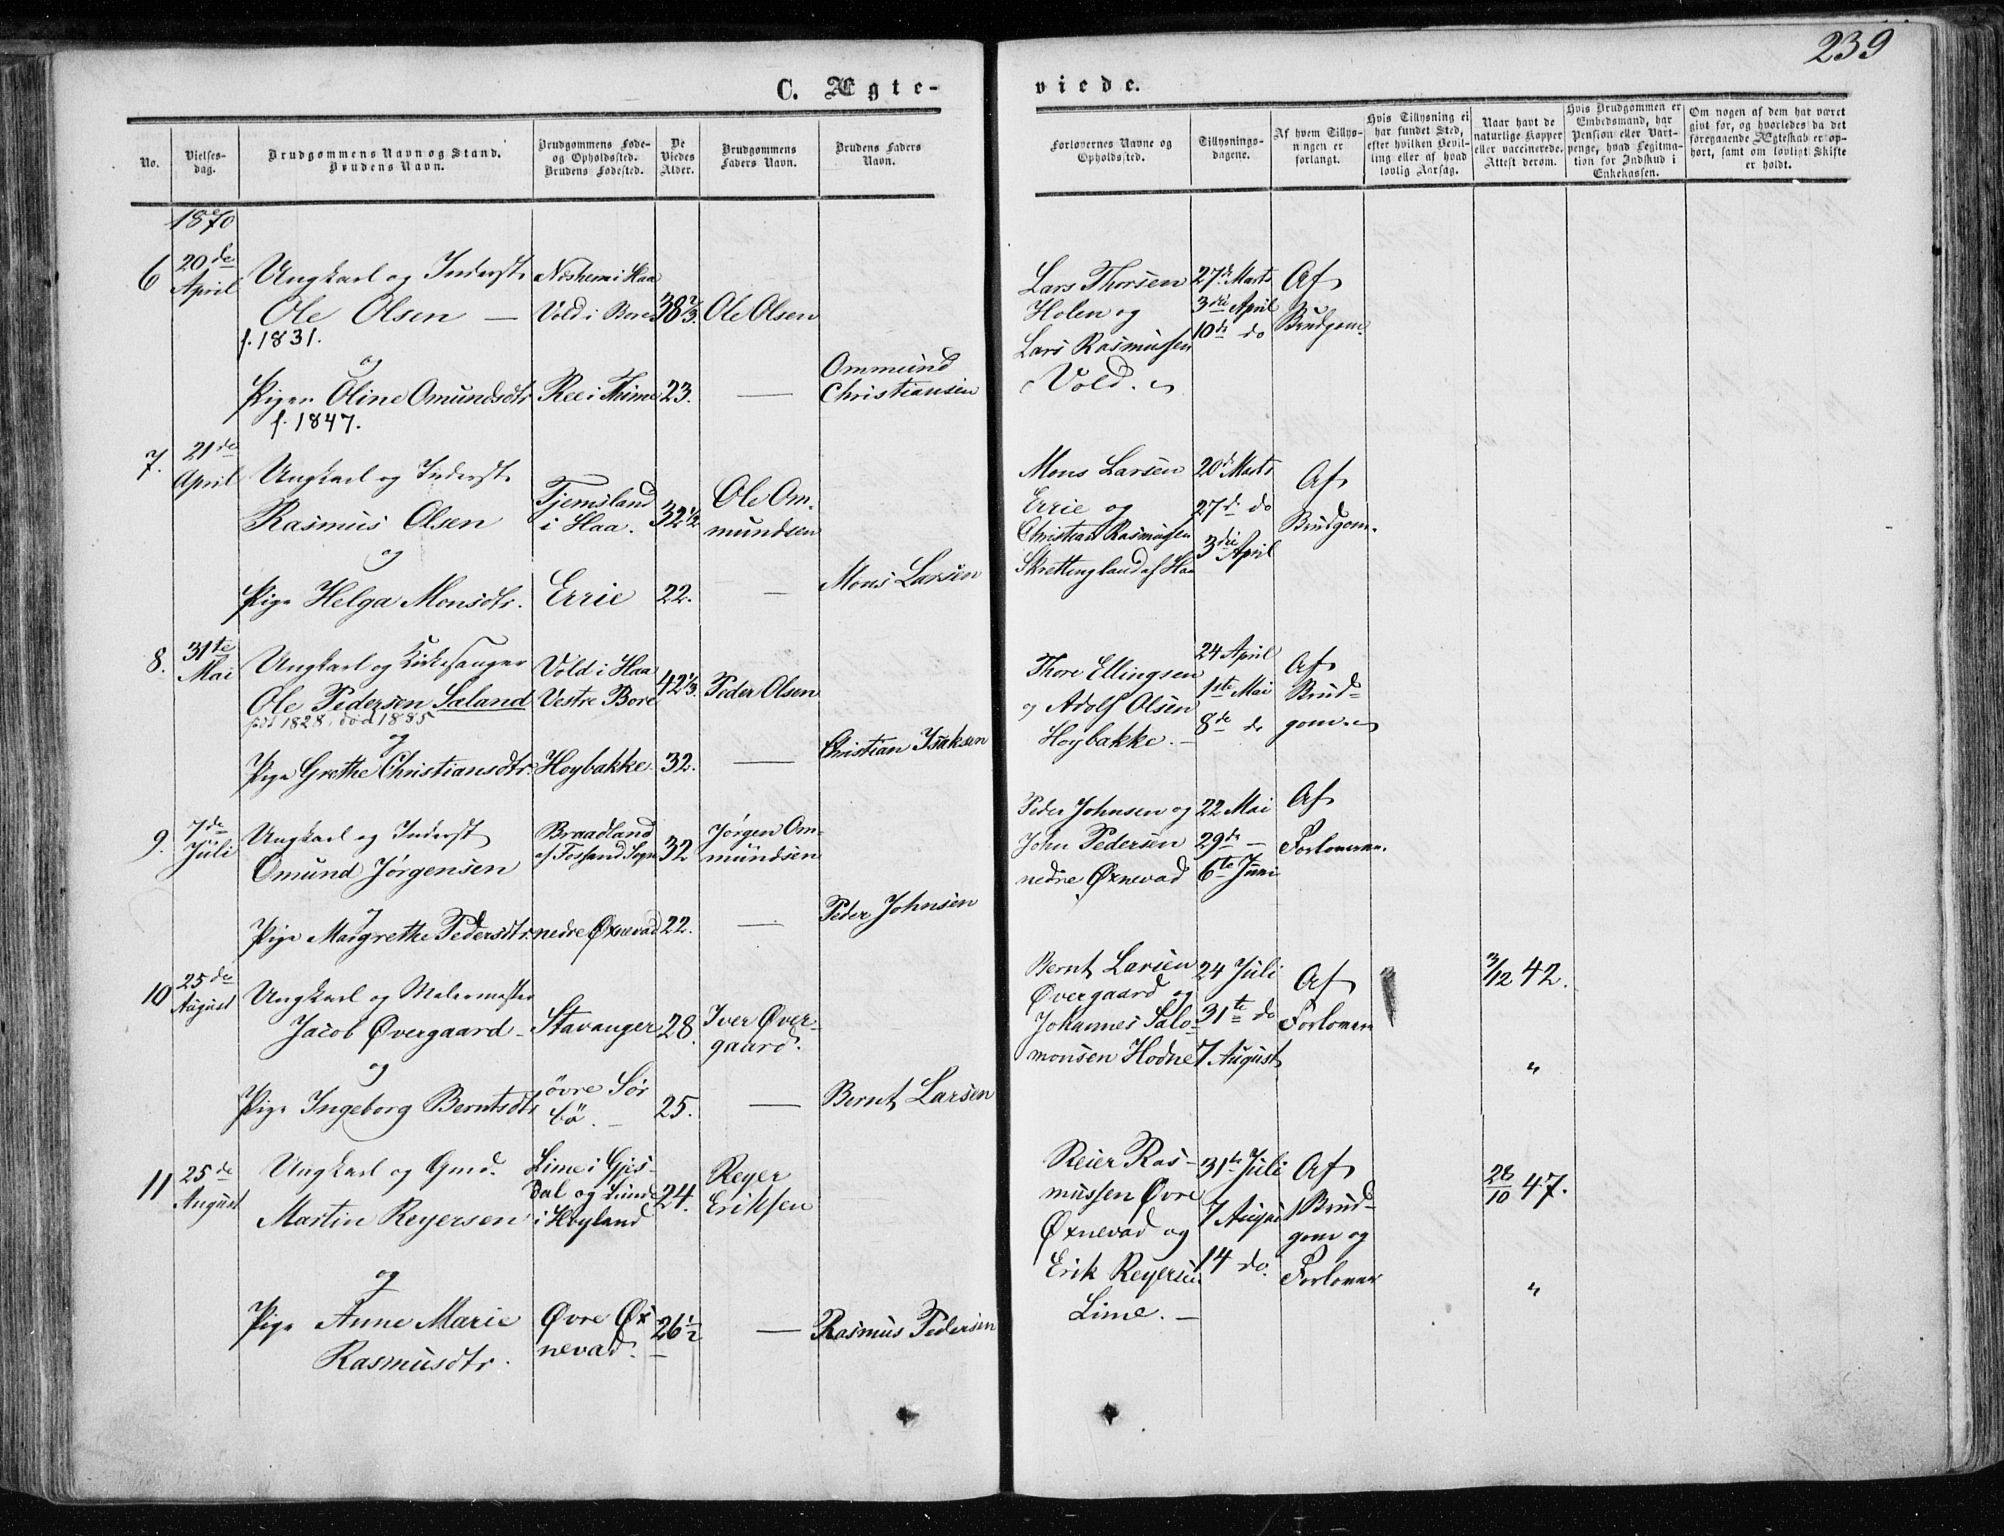 239
C. Ægte-
viede.
No.
Vielses-
dag.
Brudgommens Navn og Stand.
Brudens Navn.
Brudgommens Føde-
og Opholdssted.
Brudens Fødested.
De
Viedes
Alder.
Brudgommens
Faders Navn.
Brudens Faders
Navn.
Forlovernes Navne og
Opholdssted.
Tillysnings-
dagene.
Af hvem Tillys-
ningen er
forlangt.
Hvis Tillysning ei
har fundet Sted,
efter hvilken Bevil-
ling eller af hvad
lovlig Aarsag.
Naar havt de
naturlige Kopper
eller vaccinerede.
Attest derom.
Hvis Brudgommen er
Embedsmand, har
Pension eller Vart-
penge, hvad Legitima-
tion for Indskud i
Enkekassen.
Om nogen af dem har været
gift før, og hvorledes da det
foregaaende Ægteskab er op-
hørt, samt om lovligt Skifte
er holdt.
1870
6
20de
April
Ungkarl og Inderst
Ole Olsen —
f. 1831.
og
Pigen Oline Omundsdtr
f. 1847.
Vold i Bore
Ree i Thime
38 2/3.
23.
Ole Olsen
—
Ommund
Christiansen
Lars Thorsen
Holen og
Lars Rasmussen
Vold.
27de Marts
3die April
10de do
Af
Brudgom.
7.
21de
April
Ungkarl og Inderst
Rasmus Olsen
og
Pige Helga Monsdtr.
Tjemsland
i Haa.
Errie
32 1/2
22.
Ole Om-
mundsen
—
Mons Larsen
Mons Larsen
Errie og
Christian Rasmussen
Skrettingland af Haa
20de Marts
27de do
3die April
Af
Brudgom.
8.
31te
Mai
Ungkarl og Kirkesanger
Ole Pedersen Saland
født 1828, død 1885
og
Pige Grethe Christiansdtr.
Vold i Haa
Vestre Bore
Hoybakke
42 1/3.
32.
Peder Olsen
—
Christian Isaksen
Thore Ellingsen
og Adolf Olsen
Hoybakke. —
24 April
1ste Mai
8de do
Af
Brud-
gom.
9.
7de
Juli
Ungkarl og Inderst
Omund Jørgensen
og
Pige Margrethe Pedersdtr.
Braadland
af Fossand Sogn
nedre Øxnevad
32
22.
Jørgen Om-
mundsen
—
Peder Johnsen
Peder Johnsen og
John Pedersen
nedre Øxnevad
22 Mai
29de —
6te Juni
Af
Forloveren.
10
25de
August
Ungkarl og Malermester
Jacob Øvergaard —
og
Pige Ingeborg Berntsdtr
Stavanger
övre Sör
bö. —
28.
25.
Iver Øver-
gaard.
—
Bernt Larsen
Bernt Larsen
Øvergaard og
Johannes Salo-
monsen Hodne
24 Juli
31te do
7 August
Af
Forlovere
3/12 42.
"
11
25de
August
Ungkarl og Gmd.
Martin Reyersen
og
Pige Anne Marie
Rasmusdtr.
Lime i Gjes-
dal og Lunde
i Höyland
Øvre Øx
nevad.
24.
26 1/2
Reyer
Eriksen
—
Rasmus Pedersen
Reier Ras-
mussen Øvre
Øxnevad og
Erik Reyersen
Lime. —
31te Juli
7 August
14 do.
Af
Brud-
gom og
Forlover
28/10 47.
"